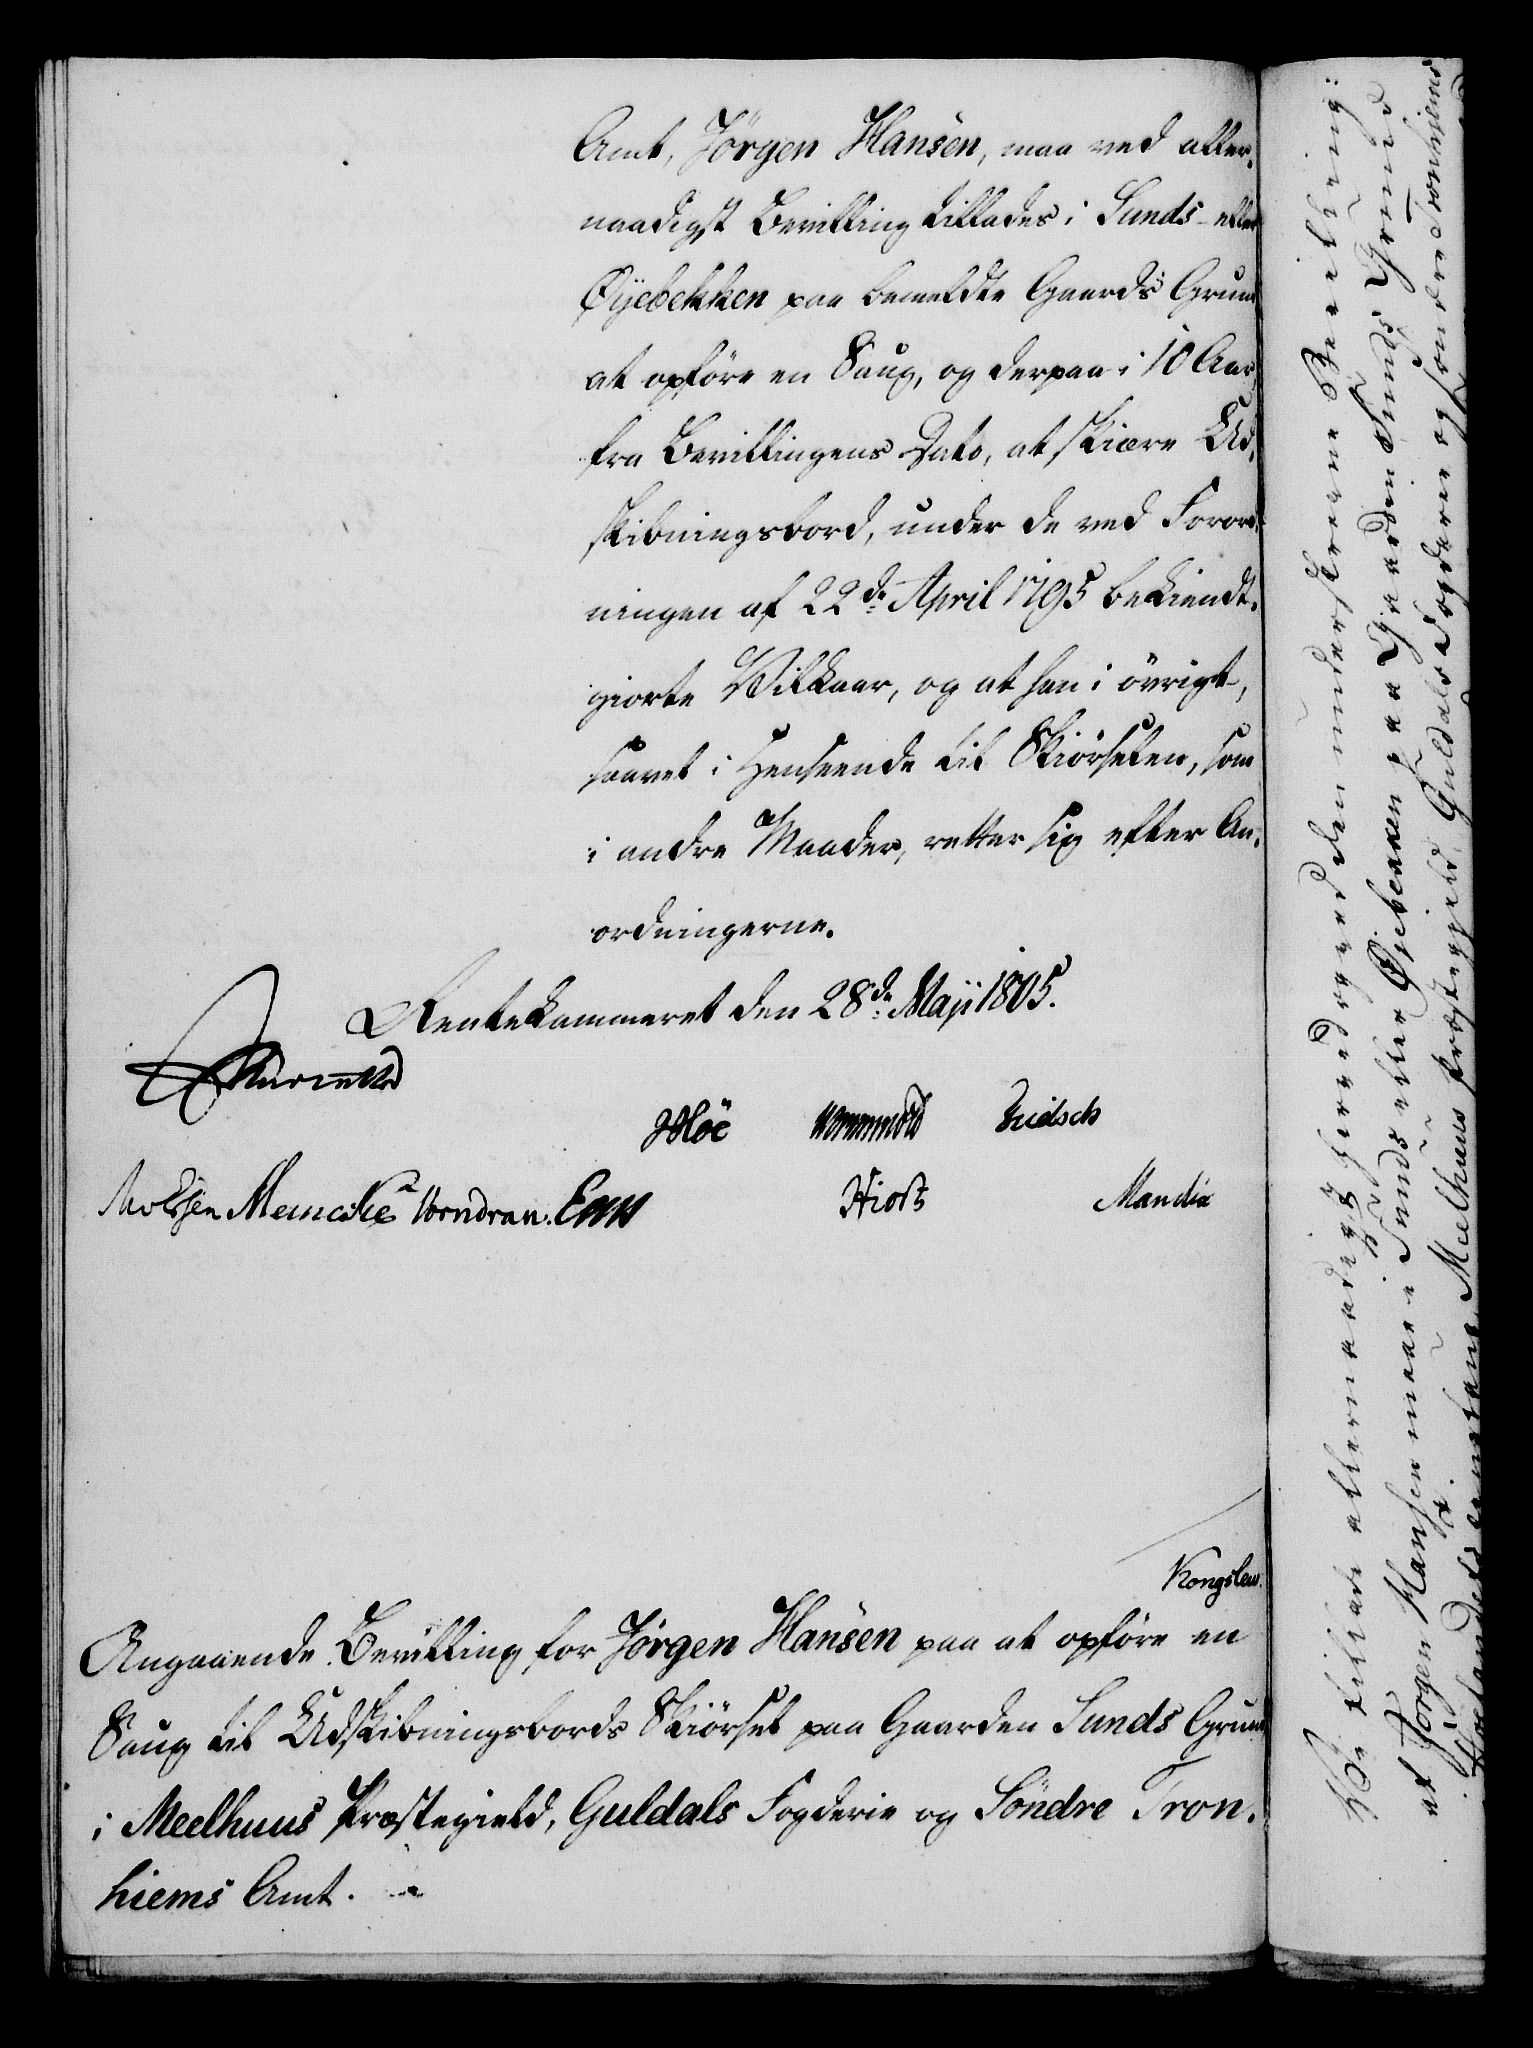 Amt, Jörgen Hansen, maa ved aller-
naadigst Bevilling tillades i Sunds- eller
Øÿebekken paa bemeldte Gaards Grund
at opföre en Saug, og derpaa i 10 Aar,
fra Bevillingens Dato, at skiære Ud-
skibningsbord, under de ved Forord-
ningen af 22de April 1795 bekiendt-
giorte Vilkaar, og at han i övrigt,
saavel i Henseende til Skiörselen, som
i andre Maader, retter sig efter An-
ordningerne.
Rentekammeret den 28de Maji 1805.
Möe
Meincke Vorndran.
Hiort
Mandix
Kongslew.
Angaaende Bevilling for Jörgen Hansen paa at opföre en
Saug til Udskibningsbords Skiörsel paa Gaarden Sunds Grund
i Meelhuus Præstegield, Guldals Fogderie og Söndre Tron-
hiems Amt.
Vi tillade allernaadigst herved og ved den underskrevne Bevilling:
at Jörgen Hansen maae i Sunds eller Øjebekken paa Gaarden Sunds Grund
Meelhuus Præstegield, Guldals Fogderie og Söndre Tronhiems